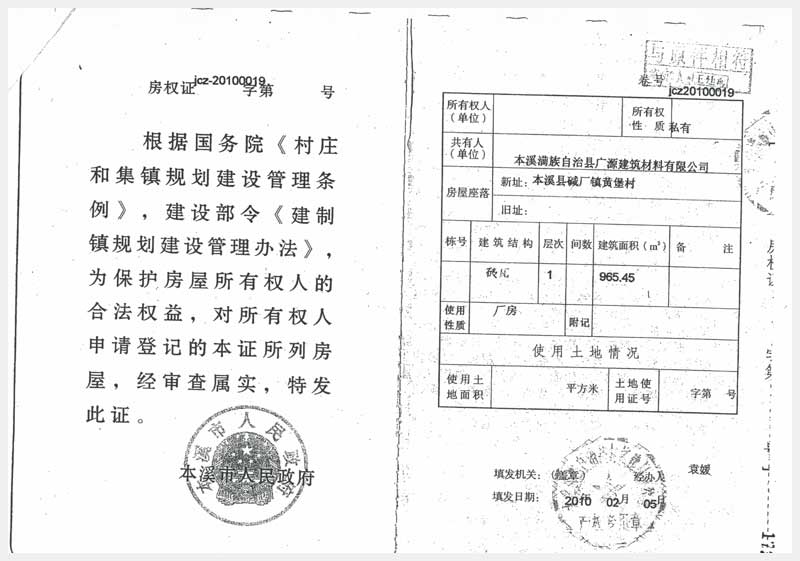 房权证 jcz-20100019 字第 号
根据国务院《村庄
和集镇规划建设管理条
例》，建设部令《建制
镇规划建设管理办法》，
为保护房屋所有权人的
合法权益，对所有权人
申请登记的本证所列房
屋，经审查属实，特发
此证。
本溪市人民政府
本溪市人民政府
与原件相符
卷号 jcz20100019
所有权人
（单位）
所有权
性 质 私有
共有人
（单位）
本溪满族自治县广源建筑材料有限公司
房屋座落
新址： 本溪县碱厂镇黄堡村
旧址：
栋号 建筑结构 层次 间数 建筑面积（m²） 备 注
砖瓦 1 965.45
使用
性质
厂房
附记
使用土地情况
使用土
地面积
平方米
土地使
用证号
字第 号
填发机关：（盖章） 经办人 袁媛
填发日期： 2010 年 02 月 05日
房权证
字第
号